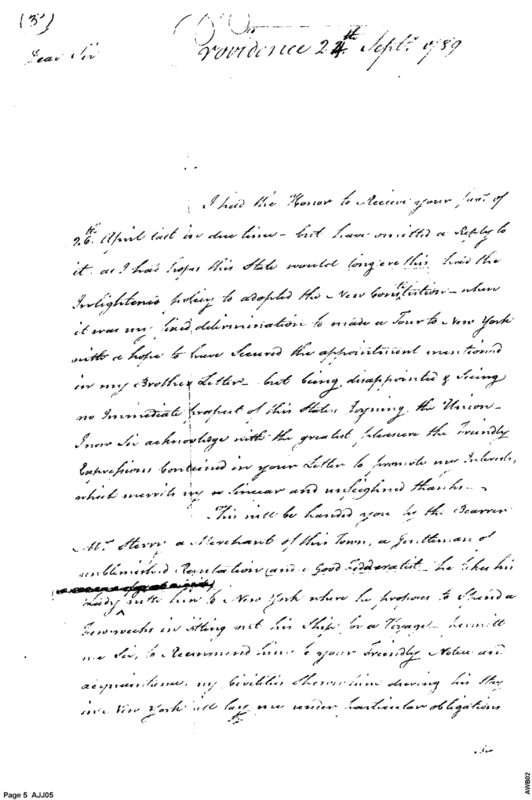 (3)
Providence 24th Sepr. 1789
Dear Sir
I had the Honor to Receive your favr. of
26th. April last in due time – but have omitted a Reply to
it as I had hopes this State would long ere this had the
Inlightened policy to adopted the New Constitution – when
it was my fixed determination to made a Tour to New York
with a hope to have Secured the appointment mentioned
in my Brother Letter – but being disappointed & Seing
no Immediate prospect of this States Joyning the Union –
I now Sir acknowledge with the greatest pleasure the Friendly
Expressions Contained in your Letter to promote my Interest,
which merrits my sincear and unfeighned thanks –
This will be handed you by the Bearrer
Mr. Sterry a Merchant of this Town, a Gentleman of
unblemished Reputation and a Good Fedderalist – he takes his
Lady with him to New York where he proposes to Spend a
few weeks in fitting out his Ship for a Voyage – permitt
me Sir, to Recommend him to your Friendly Notice and
acquaintance, any Civilities Shewn him dureing his Stay
in New York will lay me under particular obligations
Page 5 AJJ05
AWB02